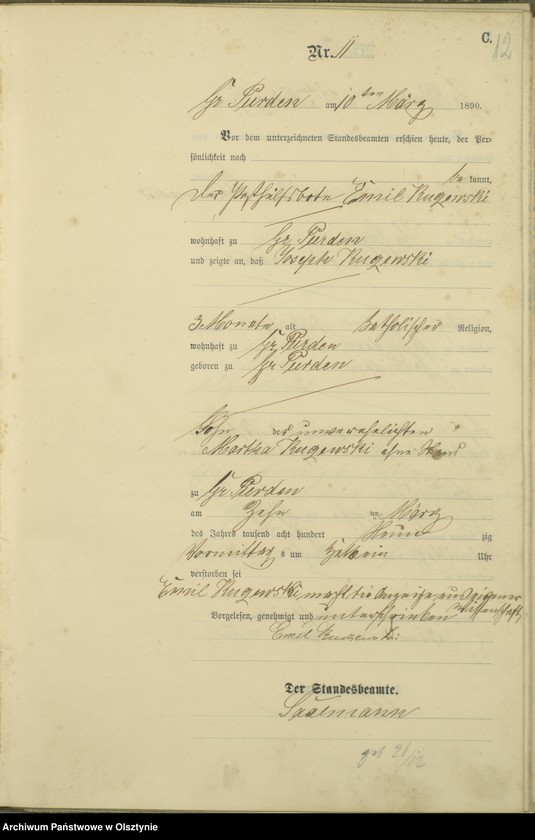 C.
12
Nr. 11
Gr. Purden am 10ten März 1890.
Vor dem unterzeichneten Standesbeamten erschien heute, der Per-
sönlichkeit nach
be kannt,
der Posthülfsbote Emil Kugewski
wohnhaft zu Gr. Purden
und zeigte an, daß Joseph Kugewski
3 Monate alt katholischer Religion,
wohnhaft zu Gr. Purden
geboren zu Gr. Purden
Sohn der unverehelichten
Martha Kugewski ohne Stand
zu Gr. Purden
am Zehn ten März
des Jahres tausend acht hundert Neun zig
Vormittags um ein Uhr
verstorben sei
Emil Kugewski macht die Anzeige aus eigener
Wissenschaft.
Vorgelesen, genehmigt und unterschrieben
Emil Kugewski
Der Standesbeamte.
Saalmann
Archiwum Państwowe w Olsztynie